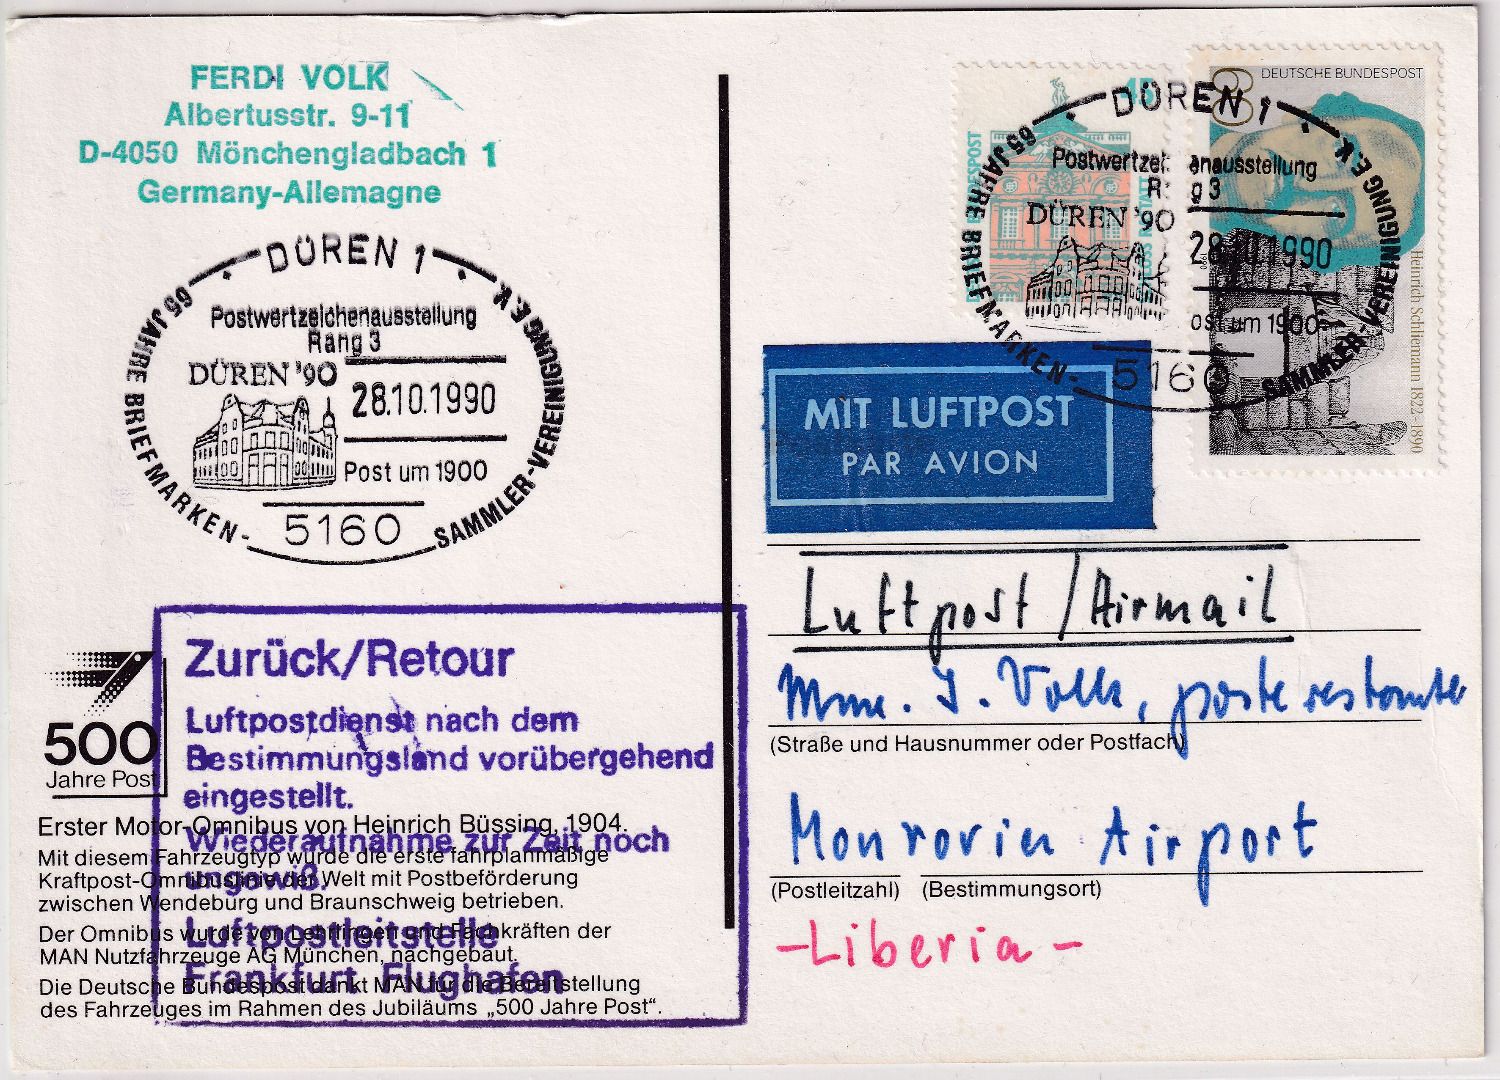 FERDI VOLK
Albertusstr. 9-11
D-4050 Mönchengladbach 1
Germany-Allemagne
DÜREN 1
65 JAHRE BRIEFMARKEN-SAMMLER-VEREINIGUNG E.K
Postwertzeichenausstellung
Rang 3
DÜREN '90
28.10.1990
Post um 1900
5160
DEUTSCHE BUNDESPOST
Heinrich Schliemann 1822-1890
DÜREN 1
65 JAHRE BRIEFMARKEN-SAMMLER-VEREINIGUNG E.K
DÜREN '90
28.10.1990
5160
MIT LUFTPOST
PAR AVION
Luftpost/Airmail
Mme. I. Volk, poste restante
(Straße und Hausnummer oder Postfach)
Monrovia Airport
(Postleitzahl) (Bestimmungsort)
-Liberia-
Zurück/Retour
Luftpostdienst nach dem
Bestimmungsland vorübergehend
eingestellt.
Wiederaufnahme zur Zeit noch
ungewiß.
Luftpostleitstelle
Frankfurt Flughafen
500
Jahre Post
Erster Motor-Omnibus von Heinrich Büssing, 1904.
Mit diesem Fahrzeugtyp wurde die erste fahrplanmäßige
Kraftpost-Omnibuslinie der Welt mit Postbeförderung
zwischen Wendeburg und Braunschweig betrieben.
Der Omnibus wurde von Lehrlingen und Fachkräften der
MAN Nutzfahrzeuge AG München, nachgebaut.
Die Deutsche Bundespost dankt MAN für die Bereitstellung
des Fahrzeuges im Rahmen des Jubiläums „500 Jahre Post“.